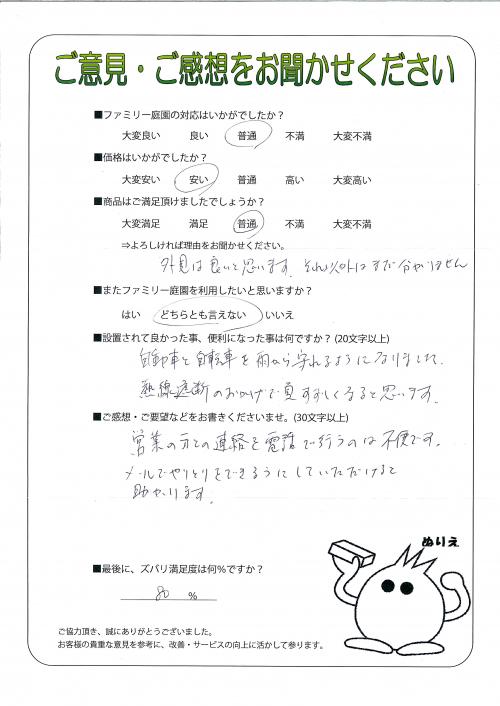 ご意見・ご感想をお聞かせください
■ファミリー庭園の対応はいかがでしたか？
大変良い 良い 普通 不満 大変不満
■価格はいかがでしたか？
大変安い 安い 普通 高い 大変高い
■商品はご満足頂けましたでしょうか？
大変満足 満足 普通 不満 大変不満
⇒よろしければ理由をお聞かせください。
外見は良いと思います。それ以外はまだ分かりません
■またファミリー庭園を利用したいと思いますか？
はい どちらとも言えない いいえ
■設置されて良かった事、便利になった事は何ですか？(20文字以上)
自動車と自転車を雨から守れるようになりました。
熱線遮断のおかげで夏すずしくなると思います。
■ご感想・ご要望などをお書きくださいませ。(30文字以上)
営業の方との連絡を電話で行うのは不便です。
メールでやりとりをできるようにしていただけると
助かります。
ぬりえ
■最後に、ズバリ満足度は何％ですか？
80 %
ご協力頂き、誠にありがとうございました。
お客様の貴重な意見を参考に、改善・サービスの向上に活かして参ります。